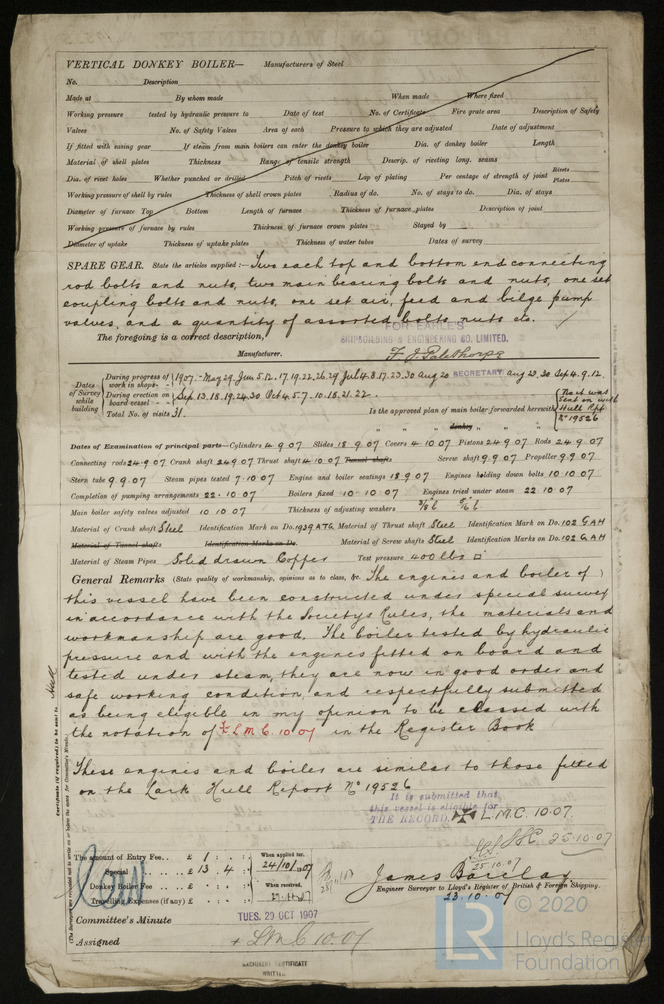 VERTICAL DONKEY BOILER— Manufacturers of Steel
No. Description
Made at By whom made When made Where fixed
Working pressure tested by hydraulic pressure to Date of test No. of Certificate Fire grate area Description of Safety
Valves No. of Safety Valves Area of each Pressure to which they are adjusted Date of adjustment
If fitted with easing gear If steam from main boilers can enter the donkey boiler Dia. of donkey boiler Length
Material of shell plates Thickness Range of tensile strength Descrip. of riveting long. seams
Dia. of rivet holes Whether punched or drilled Pitch of rivets Lap of plating Per centage of strength of joint Rivets Plates
Working pressure of shell by rules Thickness of shell crown plates Radius of do. No. of stays to do. Dia. of stays
Diameter of furnace Top Bottom Length of furnace Thickness of furnace plates Description of joint
Working pressure of furnace by rules Thickness of furnace crown plates Stayed by
Diameter of uptake Thickness of uptake plates Thickness of water tubes Dates of survey
SPARE GEAR. State the articles supplied:— Two each top and bottom end connecting
rod bolts and nuts, two main bearing bolts and nuts, one set
coupling bolts and nuts, one set air, feed and bilge pump
valves, and a quantity of assorted bolts nuts etc.
The foregoing is a correct description,
FOR EARLE'S
SHIPBUILDING & ENGINEERING CO. LIMITED.
Manufacturer. F. J. Palethorpe
SECRETARY
Dates of Survey while building
During progress of work in shops - - 1907 - May 29. Jun 5.12.17.19.22.26.29 Jul 4.8.17.23.30 Aug 20 Aug 23.30 Sep 4.9.12.
During erection on board vessel - - - Sep 13.18.19.24.30 Oct 4.5.7.10.18.21.22.
Total No. of visits 31.
Is the approved plan of main boiler forwarded herewith
" " " donkey " " "
sent in with Hull Rpt No 19526
Dates of Examination of principal parts—Cylinders 4.9.07 Slides 18.9.07 Covers 4.10.07 Pistons 24.9.07 Rods 24.9.07
Connecting rods 24.9.07 Crank shaft 24.9.07 Thrust shaft 4.10.07 Tunnel shafts Screw shaft 9.9.07 Propeller 9.9.07
Stern tube 9.9.07 Steam pipes tested 7.10.07 Engine and boiler seatings 18.9.07 Engines holding down bolts 10.10.07
Completion of pumping arrangements 22.10.07 Boilers fixed 10.10.07 Engines tried under steam 22.10.07
Main boiler safety valves adjusted 10.10.07 Thickness of adjusting washers
Material of Crank shaft Steel Identification Mark on Do. 1939 ATG Material of Thrust shaft Steel Identification Mark on Do. 102 GAH
Material of Tunnel shafts Identification Marks on Do. Material of Screw shafts Steel Identification Marks on Do. 102 GAH
Material of Steam Pipes Solid drawn Copper Test pressure 400 lbs □
General Remarks (State quality of workmanship, opinions as to class, &c. The engines and boiler of
this vessel have been constructed under special survey
in accordance with the Societys Rules, the materials and
workmanship are good. The boiler tested by hydraulic
pressure and with the engines fitted on board and
tested under steam, they are now in good order and
safe working condition, and respectfully submitted
as being eligible in my opinion to be classed with
the notation of + L M C 10.07 in the Register Book
These engines and boiler are similar to those fitted
on the Lark Hull Report No 19526
It is submitted that
this vessel is eligible for
THE RECORD. + L.M.C. 10.07.
25.10.07
25.10.07
The amount of Entry Fee. . £ 1 : : When applied for,
Special . . £ 13 : 4 : 24/10/07
Donkey Boiler Fee . . £ : : When received,
Travelling Expenses (if any) £ : :
James Barclay
Engineer Surveyor to Lloyd's Register of British & Foreign Shipping.
23.10.07
Committee's Minute TUES. 29 OCT 1907
Assigned + L M C 10.07
MACHINERY CERTIFICATE
WRITTEN
Certificate (if required) to be sent to Hull
(The Surveyors are requested not to write on or below the space for Committee's Minute.)
© 2020
LR
Lloyd's Register
Foundation